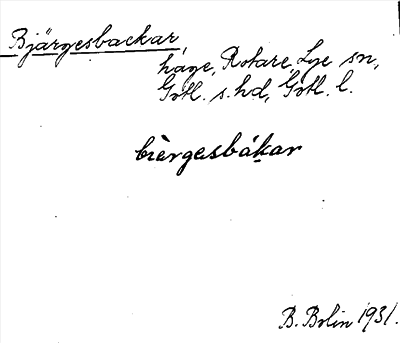 Bjärgesbackar,
håge, Rotare, Lye sn,
Gotl. s. hd, Gotl. l.
bièrgesbákar
B. Bolin 1931.